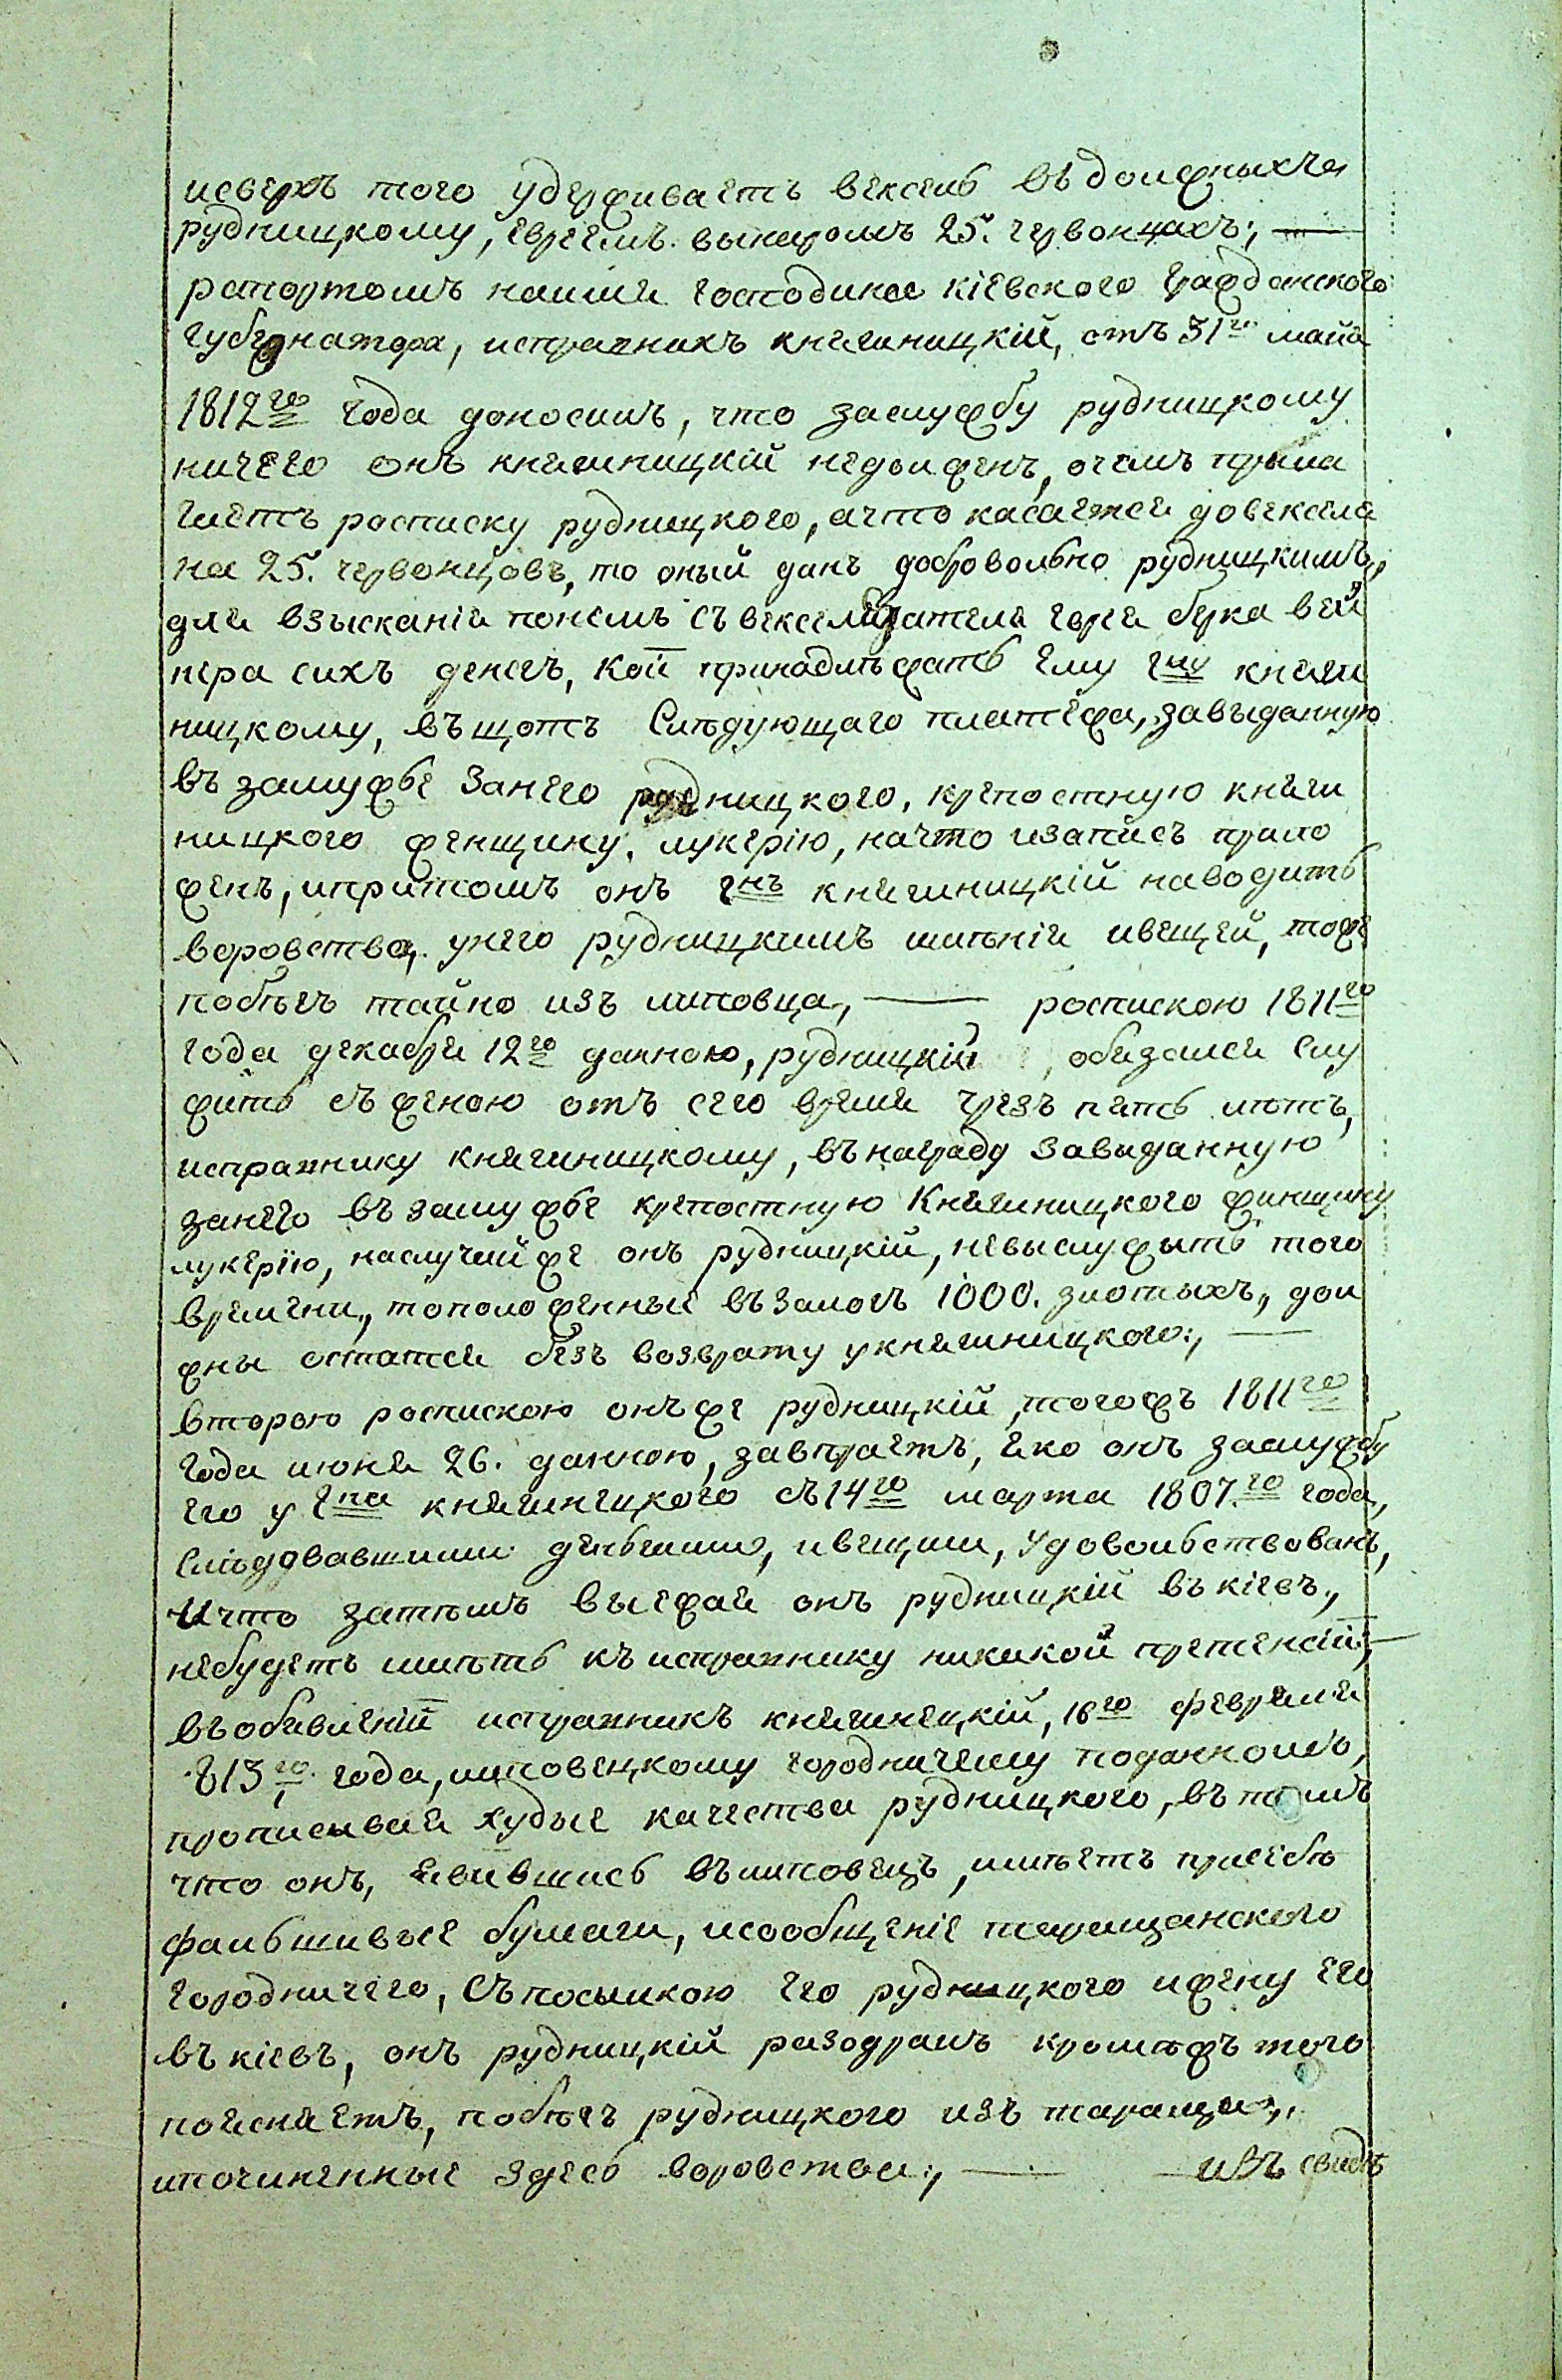 исверхъ того удерживаетъ вексель въ должныхъ
рудницкому, евреемъ вынаромъ 25. червонцахъ;
рапортомъ наимя господина кіевского гражданского
губернатора, исправникъ княгиницкій, отъ 31го майа
1812го года доноситъ, что заслужбу рудницкому
ничего онъ княгиницкій недолженъ, очемъ прыла
гаетъ росписку рудницкого, ачто касается довексела
на 25. червонцовъ, то оный данъ добровольно рудницкимъ,
для взысканія понемъ съ векселядателя еврея берка вей
нера сихъ денегъ, кои принадлежатъ ему гну княги
ницкому, въ щотъ следующаго платежа, завыданную
въ замужбе занего рудницкого, крепостную княги
ницкого женщину, лукерію, начто изаписъ прило
женъ, ипритомъ онъ гнъ княгиницкій наводитъ
воровства, унего рудницкимъ имѣнія ивещей, тоже
побѣгъ тайно изъ липовца, — роспискою 1811го
года декабря 12го данною, рудницкій, обязался слу
жить съ женою отъ сего время чрезъ пять лѣтъ,
исправнику княгиницкому, въ награду завыданную
занего въ замужбе крепостную Княгиницкого жинщину
лукерію, наслучай же онъ рудницкій, невыслужытъ того
времени, тоположенные въ залогъ 1000. злотыхъ, дол
жны остатся безъ возврату укнягиницкого; —
второю роспискою онъже рудницкій, тогожъ 1811го
года июня 26. данною, завпраетъ, яко онъ заслужбу
его у гна княгиницкого съ 14го марта 1807го года,
слѣдовавшими деньгами, ивещми, удовольствованъ,
Ичто затѣмъ выежая онъ рудницкій въ кіевъ,
небудетъ имѣть къ исправнику никакой претенсіи; —
въ обявленіи исправникъ княгиницкій, 16го февраля
813го года, липовецкому городничему поданномъ,
прописывая худые качества рудницкого, въ томъ
что онъ, явившись въ липовецъ, имѣетъ присебѣ
фальшивые бумаги, исообщеніе таращанского
городничего, съ посылкою его рудницкого ижену его
въ кіевъ, онъ рудницкій разодралъ кромѣжъ того
поясняетъ, побѣгъ рудницкого изъ таращи,
ипочиненные здесь воровства; — изъ свидѣ